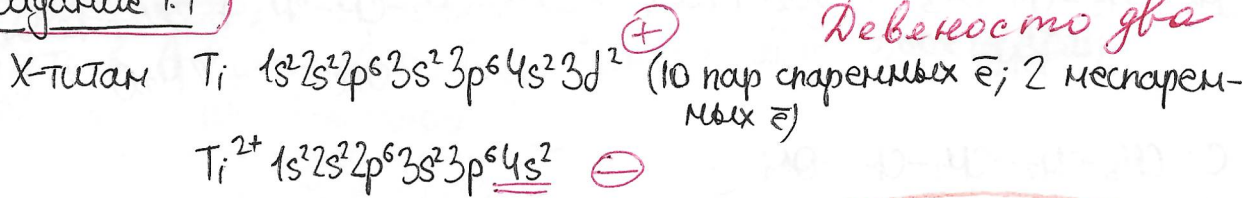 Задание 1.1
Девеносто два
X-титан Ti 1s²2s²2p⁶3s²3p⁶4s²3d² (+) (10 пар спаренных ē; 2 неспарен-
ных ē)
Ti²⁺ 1s²2s²2p⁶3s²3p⁶4s² (−)